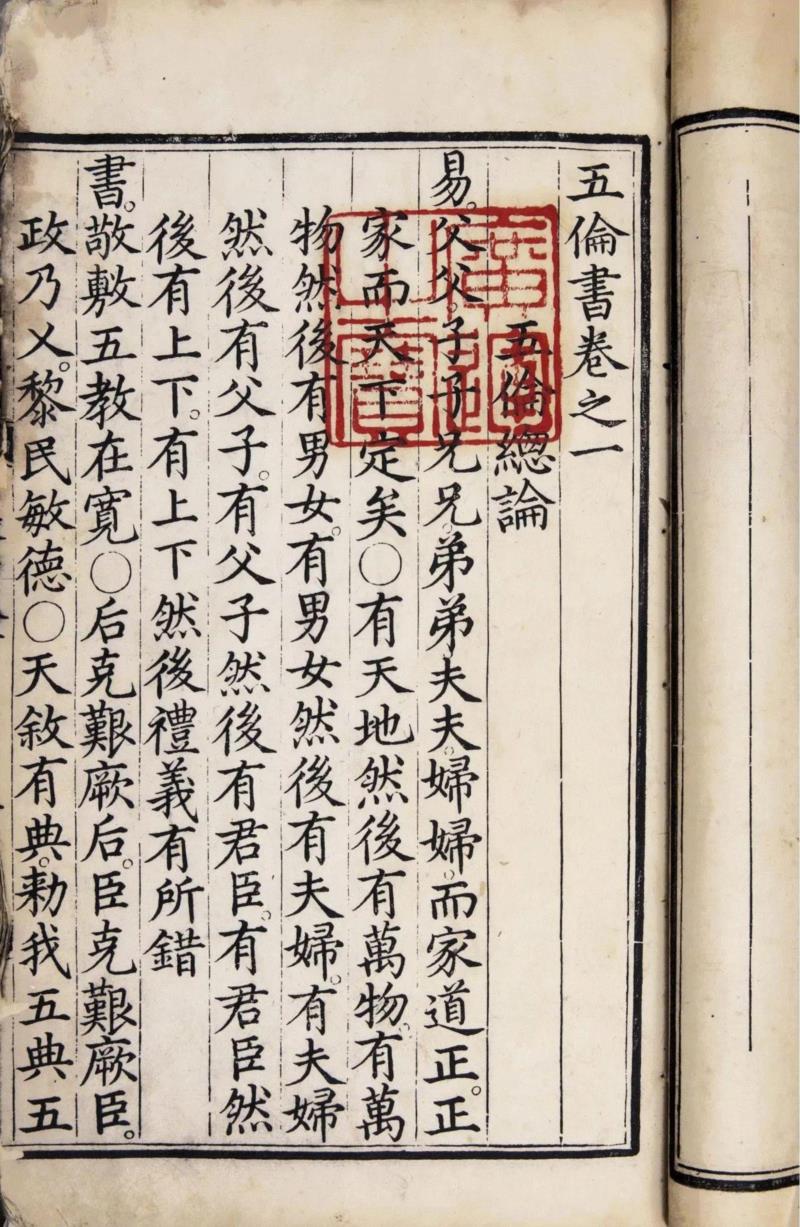 五倫書卷之一
五倫總論
易。父父。子子。兄兄。弟弟夫夫。婦婦。而家道正。正
家而天下定矣○有天地然後有萬物。有萬
物然後有男女。有男女然後有夫婦。有夫婦
然後有父子。有父子然後有君臣。有君臣然
後有上下。有上下然後禮義有所錯
書。敬敷五教在寬○后克艱厥后。臣克艱厥臣。
政乃乂。黎民敏德○天敘有典。勑我五典五